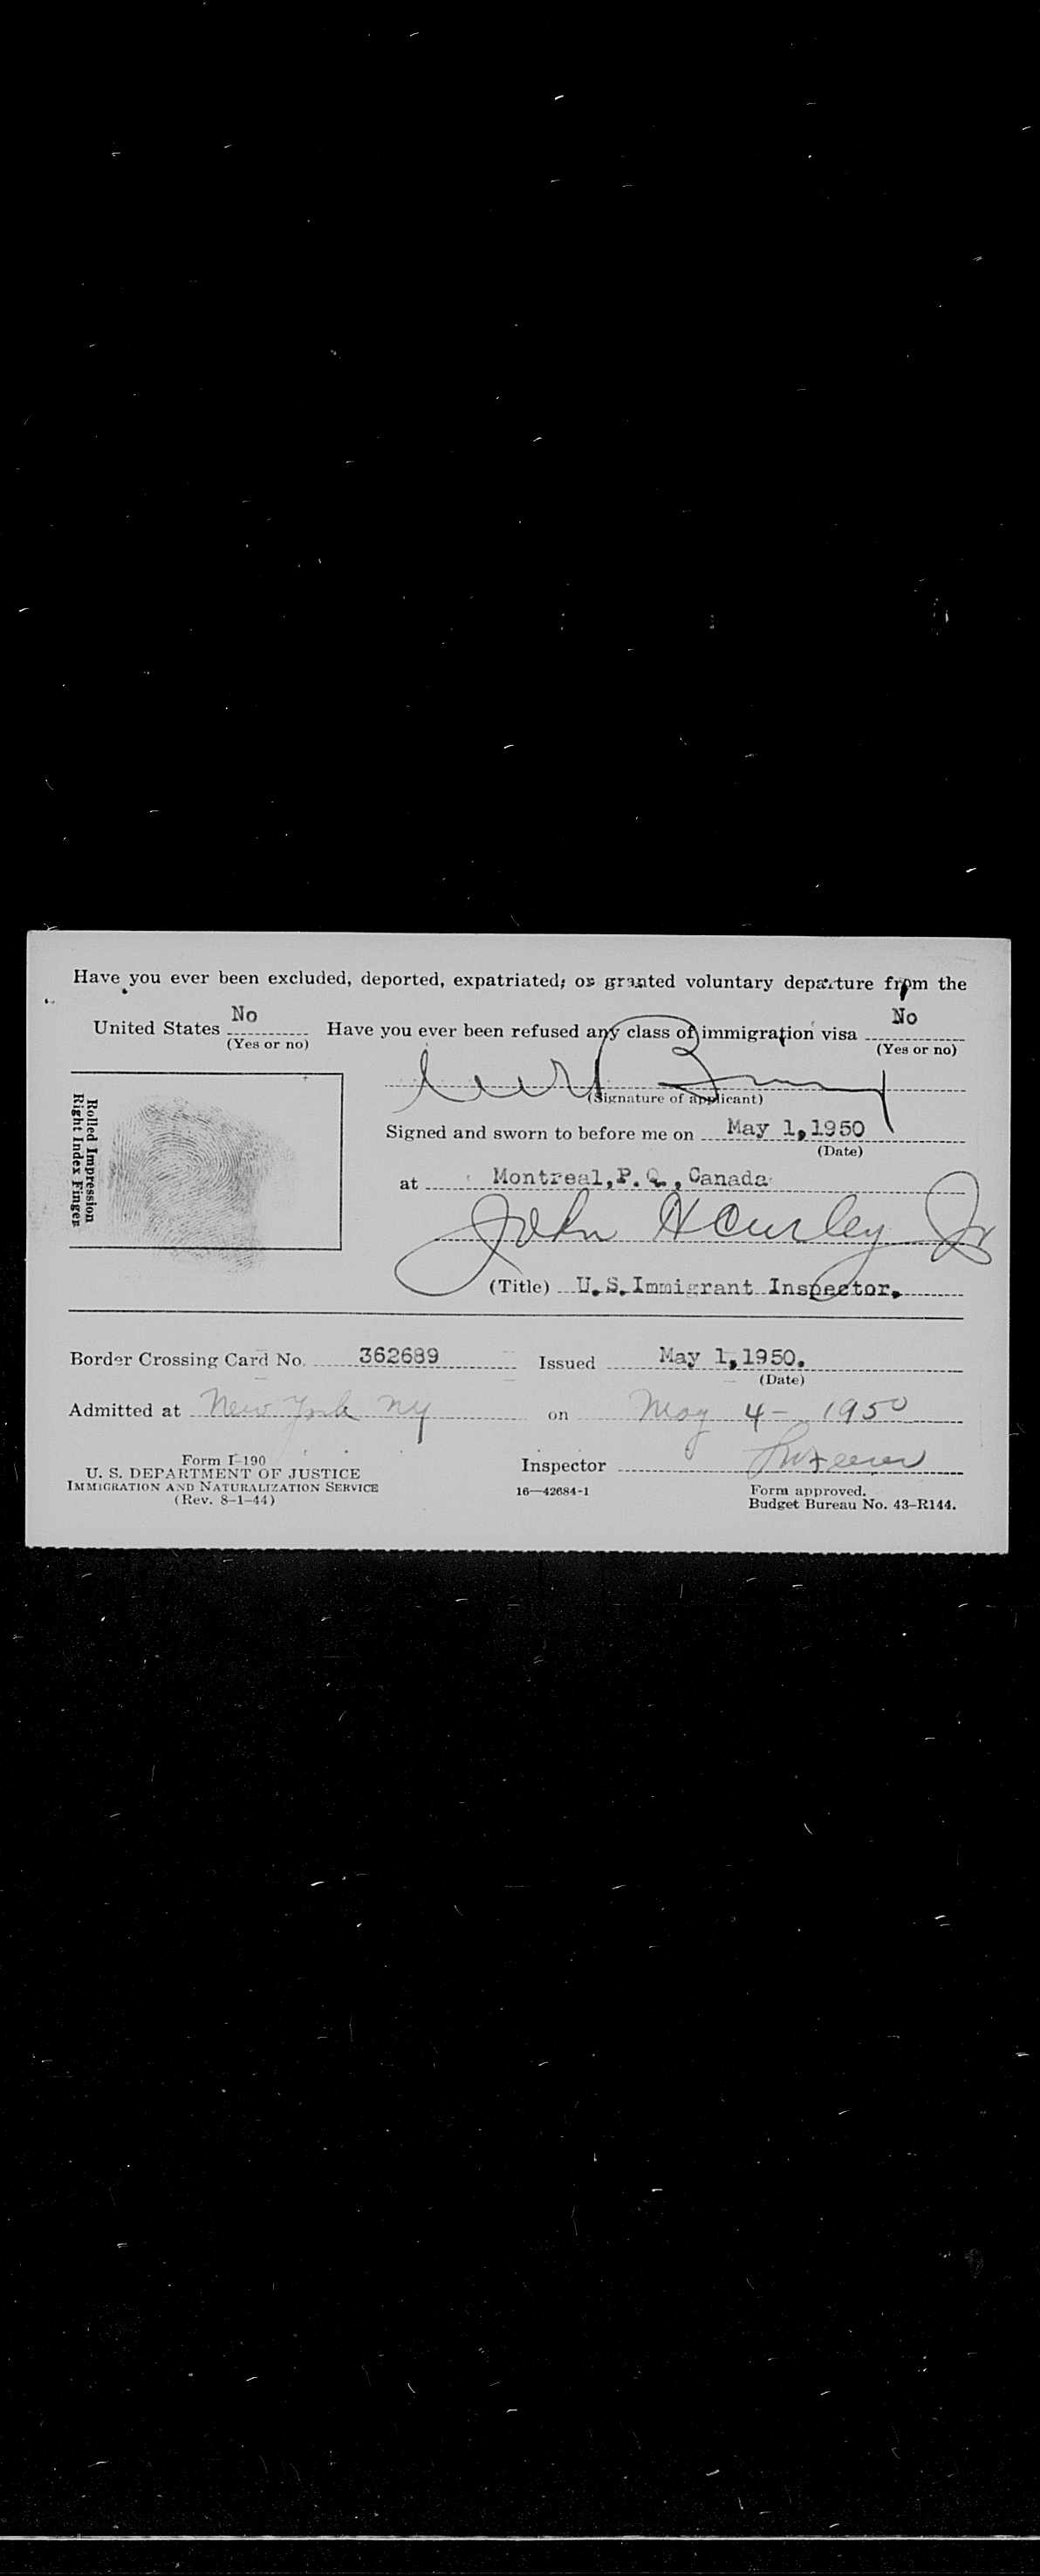 Have you ever been excluded, deported, expatriated, or granted voluntary departure from the
United States No Have you ever been refused any class of immigration visa No
(Yes or no) (Yes or no)
(Signature of applicant)
Rolled Impression
Right Index Finger
Signed and sworn to before me on May 1, 1950
(Date)
at Montreal, P. Q., Canada
John H Curley Jr
(Title) U. S. Immigrant Inspector.
Border Crossing Card No. 362689 Issued May 1, 1950.
(Date)
Admitted at New York NY on May 4- 1950
Form I-190
U. S. DEPARTMENT OF JUSTICE
IMMIGRATION AND NATURALIZATION SERVICE
(Rev. 8-1-44)
Inspector
16—42684-1
Form approved.
Budget Bureau No. 43-R144.